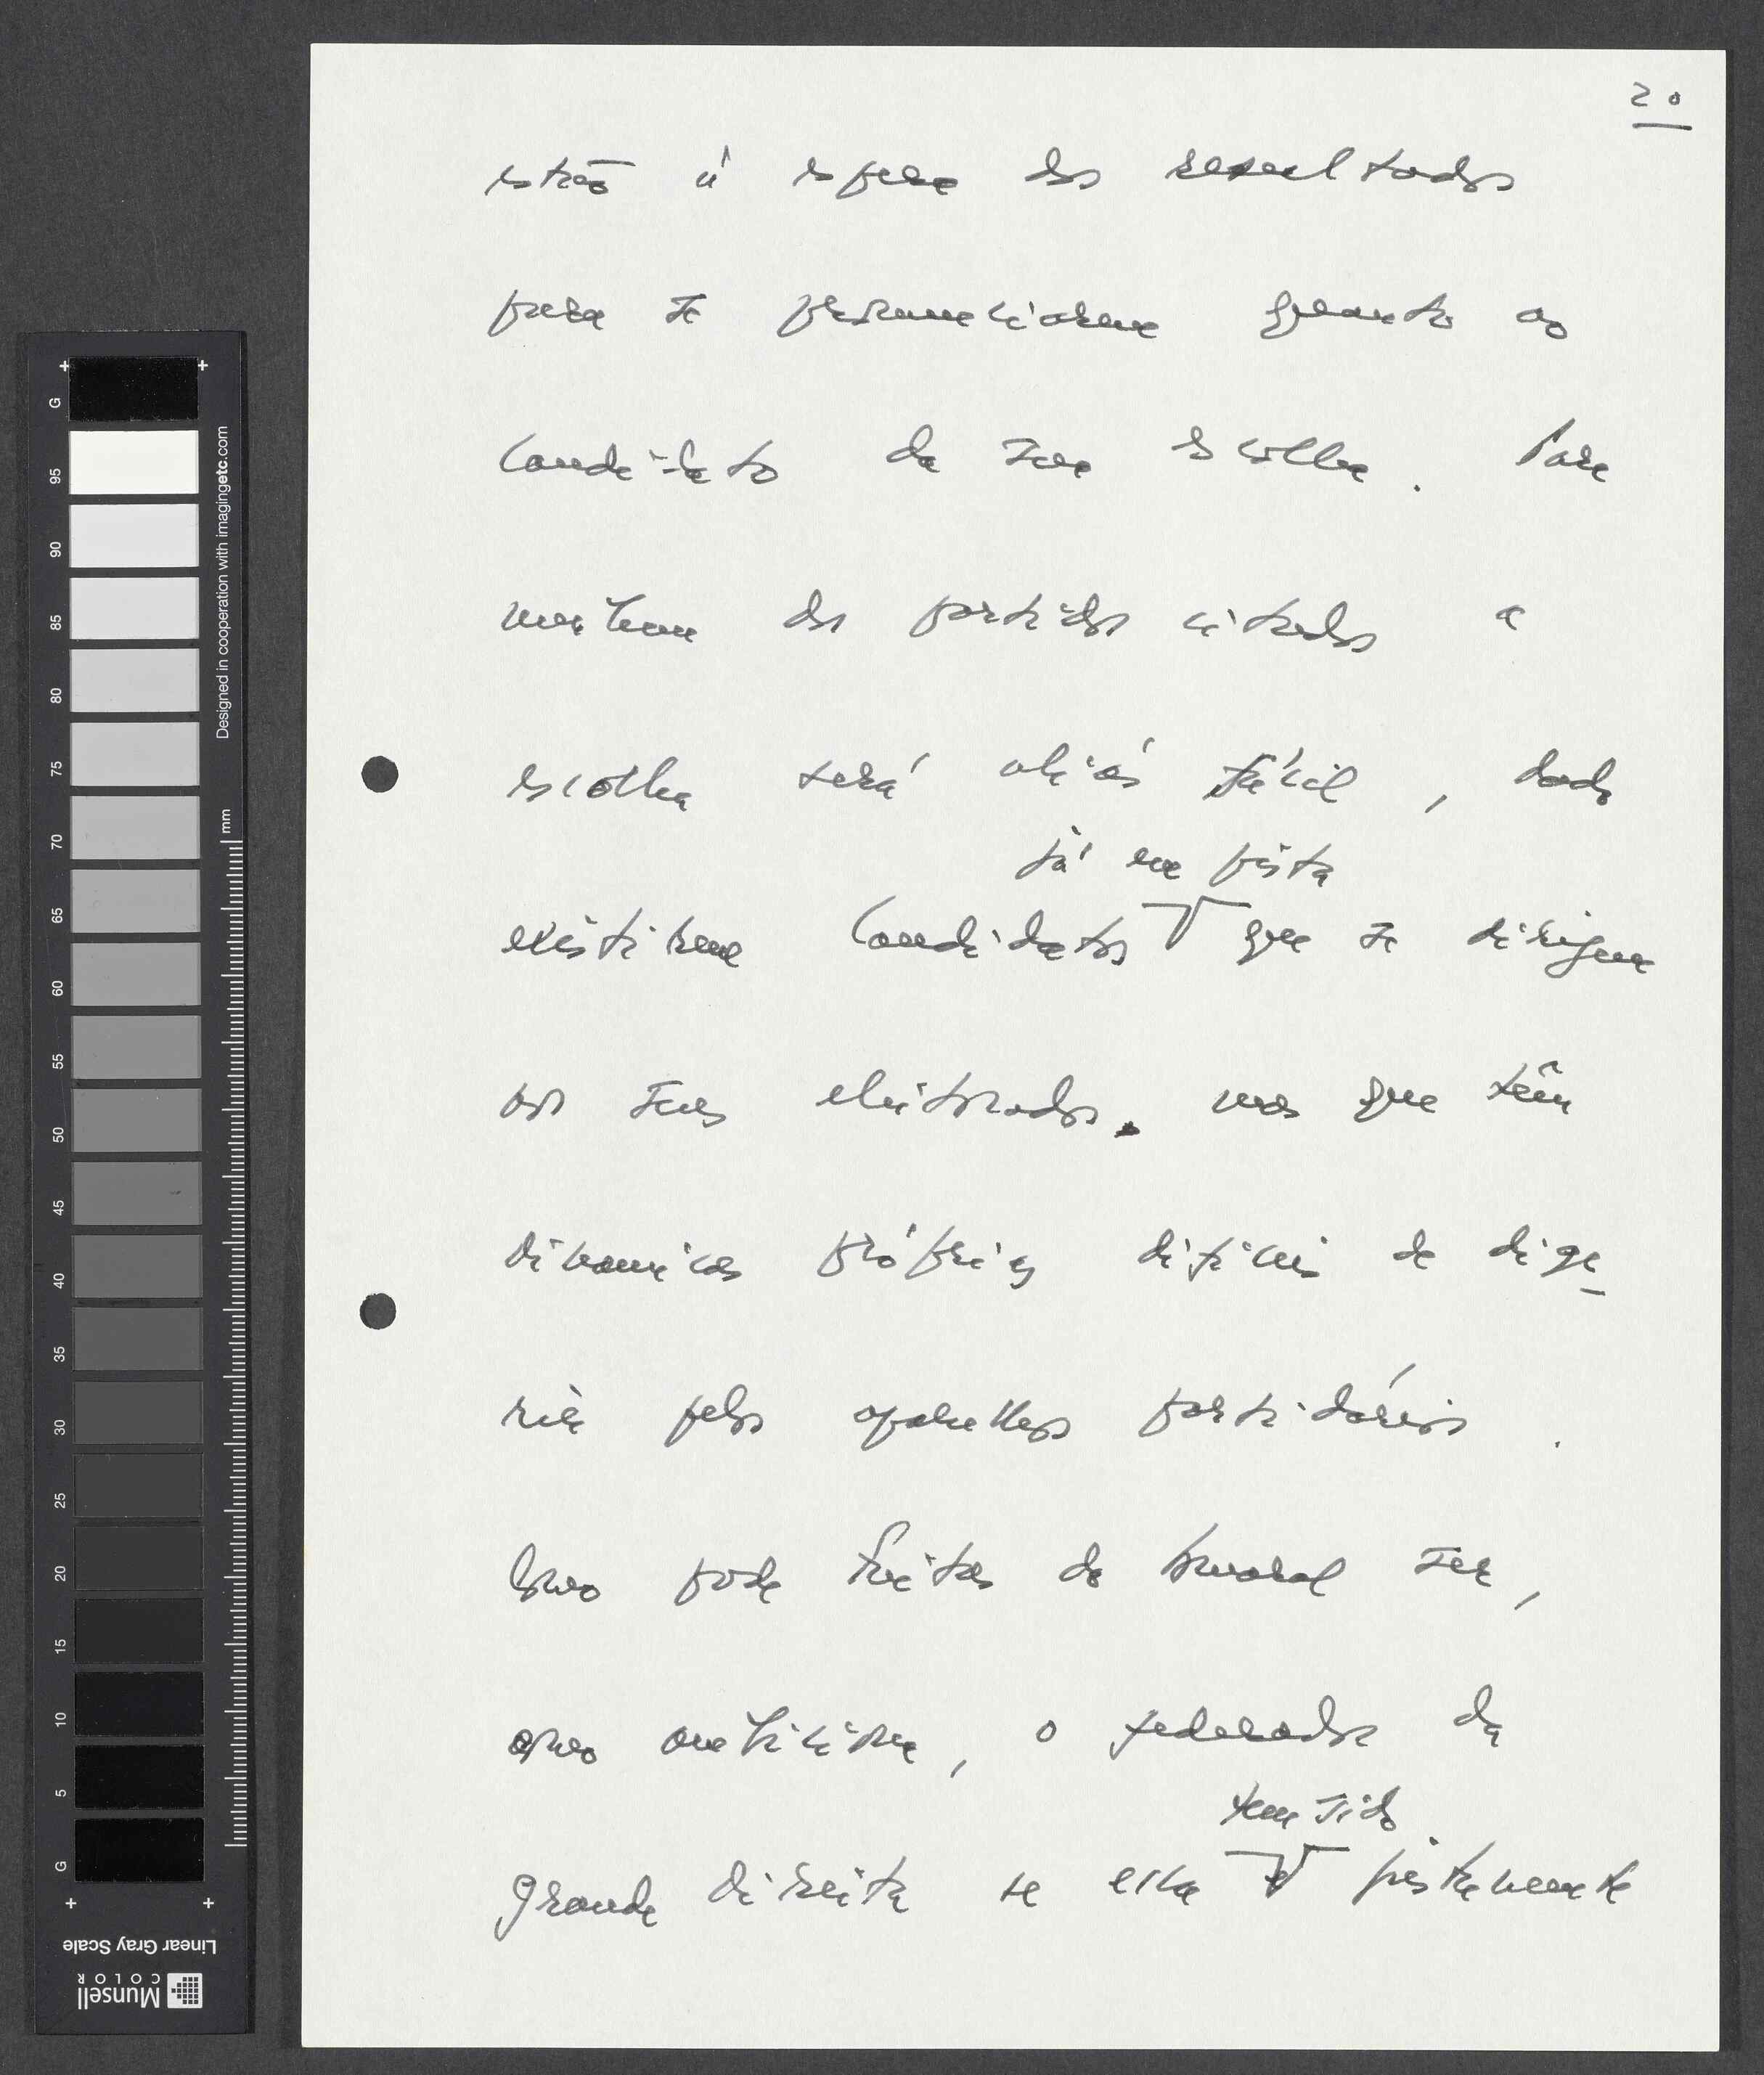 20
estão à espera dos resultados
para se pronunciarem quanto ao
candidato da sua escolha. Para
nenhum dos partidos citados a
escolha será aliás fácil, dado
já em pista
existirem candidatos que se dirigem
aos seus eleitorados, mas que têm
dinamicas próprias difíceis de dige-
rir pelos aparelhos partidários.
Como pode Freitas do Amaral ser,
como ambiciona, o federador da
tem sido
grande direita se ela é justamente
G
95
90
85
80
75
70
65
60
55
50
45
40
35
30
25
20
15
10
5
G
mm
Designed in cooperation with imagingetc.com
Linear Gray Scale
Munsell
COLOR